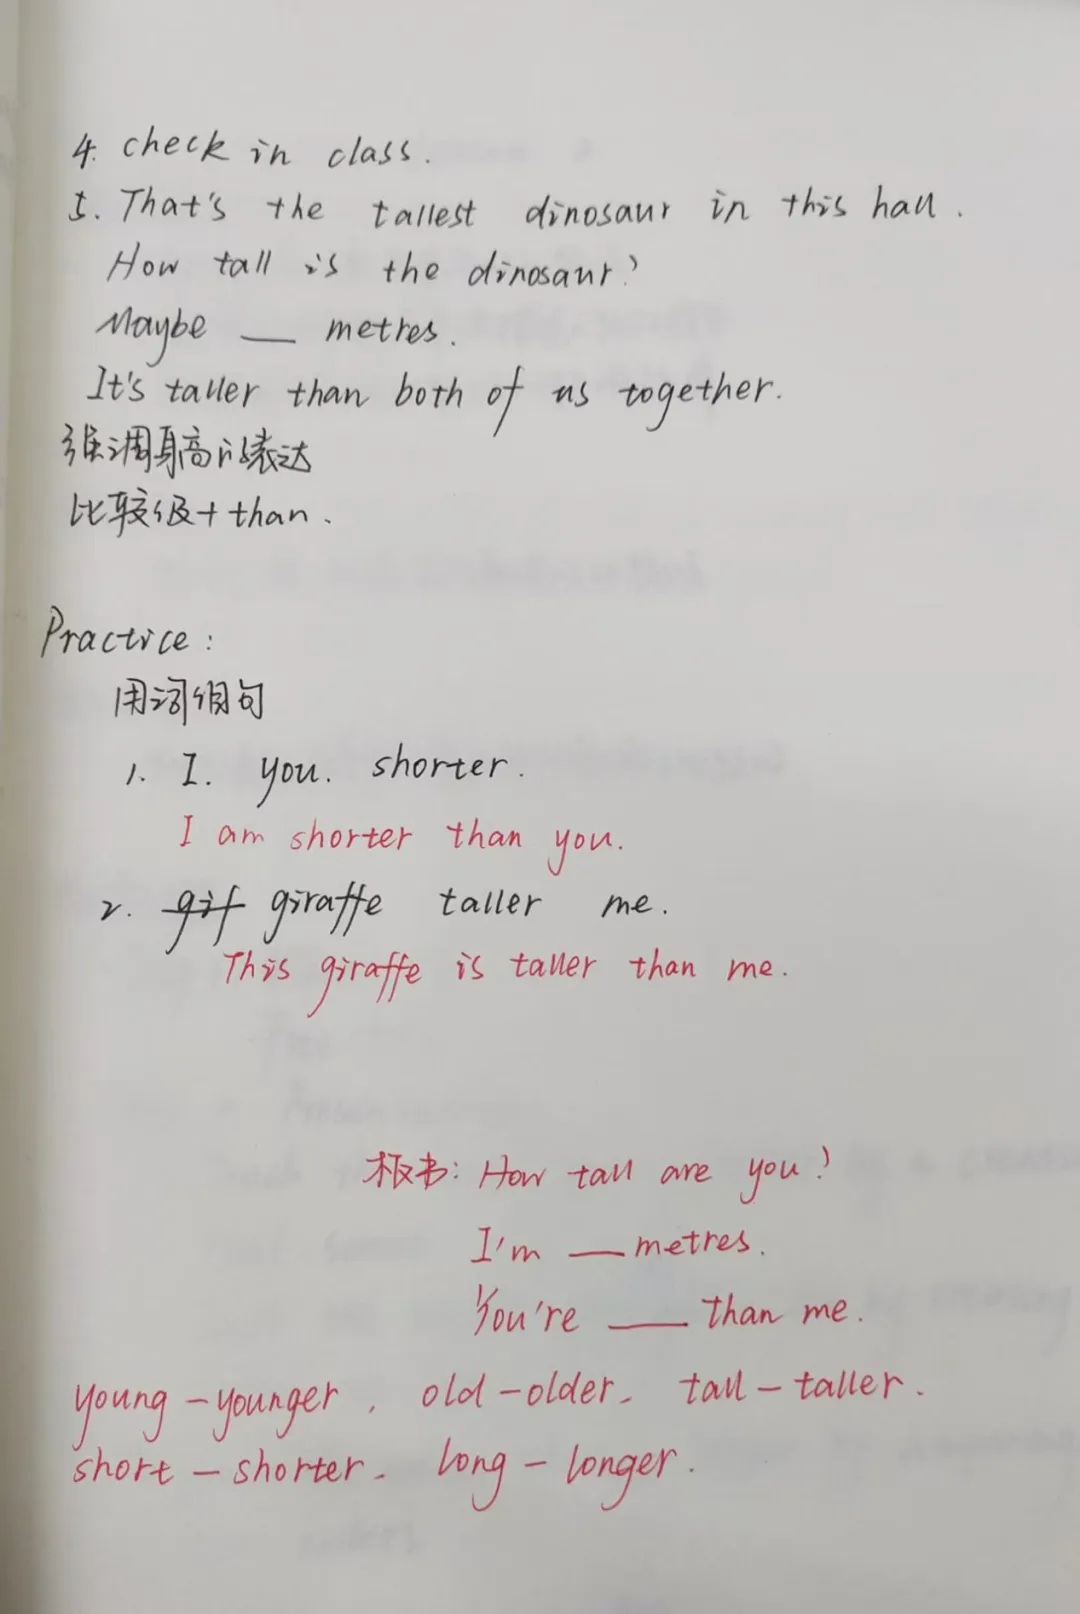 4. check in class.
5. That's the tallest dinosaur in this hall.
How tall is the dinosaur?
Maybe __ metres.
It's taller than both of us together.
强调身高的表达
比较级+than.
Practice:
用词组句
1. I. you. shorter.
I am shorter than you.
2. gif giraffe taller me.
This giraffe is taller than me.
板书: How tall are you?
I'm __ metres.
You're __ than me.
young-younger, old-older. tall-taller.
short-shorter. long-longer.